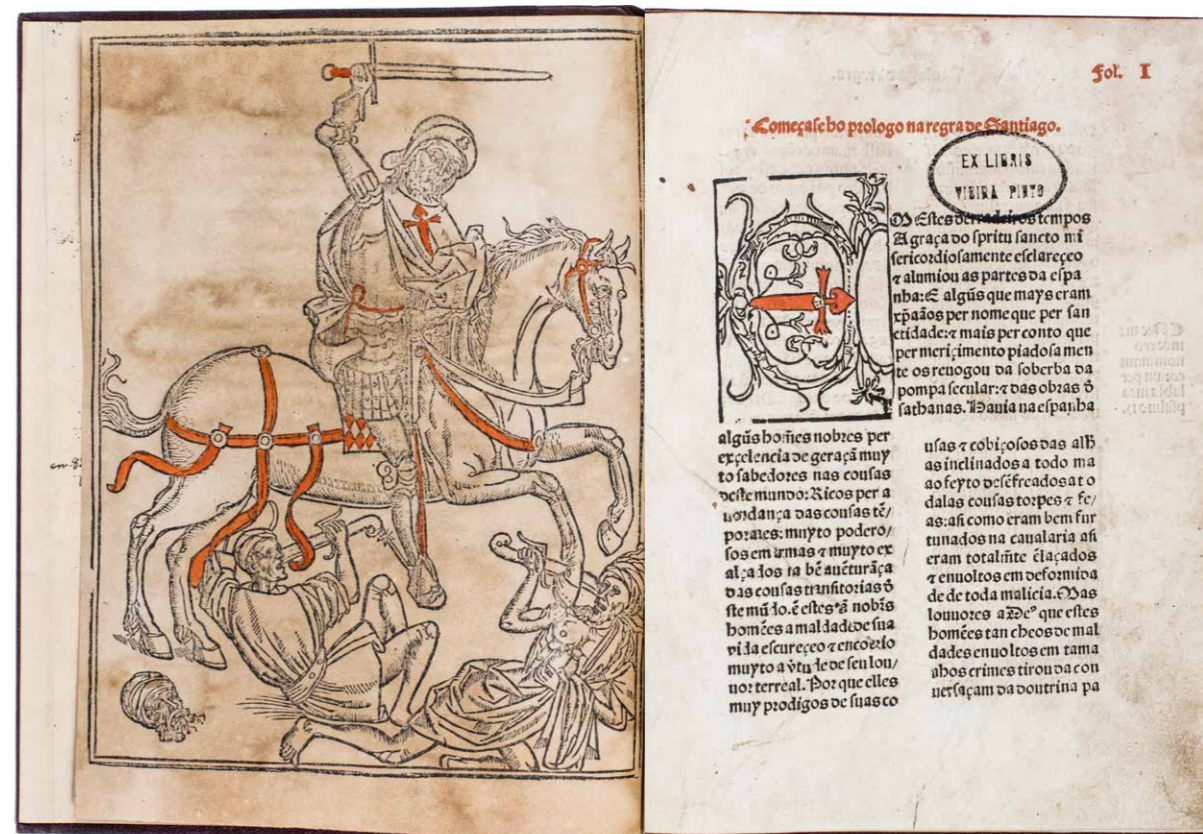 Fol. I
Começase ho prologo na regra de Santiago.
EX LIBRIS
VIEIRA PINTO
M Estes derradeiros tempos
A graça do spritu sancto mi
sericordiosamente esclareçeo
⁊ alumiou as partes da espa
nha: E algũs que mays eram
xp̃aãos per nome que per san
ctidade: ⁊ mais per conto que
per meriçimento piadosa men
te os reuogou da soberba da
pompa secular: ⁊ das obras d̃
sathanas. Hauia na espanha
algũs homẽs nobres per
exçelencia de geraçã muy
to sabedores nas cousas
deste mundo: Ricos per a
uondança das cousas tẽ/
poraes: muyto podero/
sos em armas ⁊ muyto ex
alçados na bẽ auẽturãça
das cousas transitorias d̃
ste mũdo. ẽ estes tã nobr̃s
homẽes a maldade de sua
vida escureçeo ⁊ encoerio
muyto a ṽtude de seu lou/
uor terreal. Por que elles
muy prodigos de suas co
usas ⁊ cobiçosos das alh̃
as inclinados a todo ma
ao feyto desẽfreados a to
dalas cousas torpes ⁊ fe/
as: asi como eram bem fur
tunados na caualaria asi
eram totalm̃te ẽlaçados
⁊ enuoltos em deformida
de de toda malicia. Mas
louuores a Deꝰ que estes
homẽes tan cheos de mal
dades enuoltos em tama
nhos crimes tirou da con
uersaçam da doutrina pa